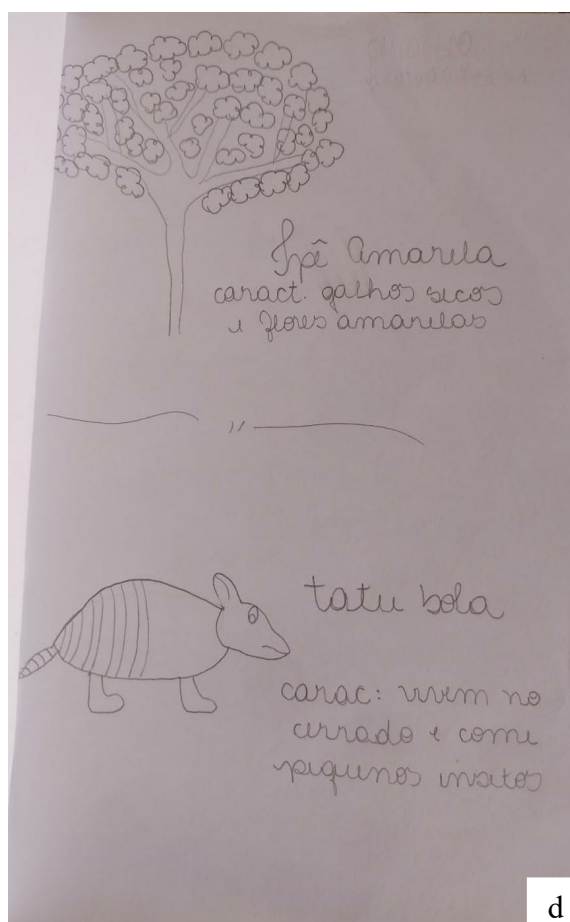 Ipê Amarela
caract. galhos secos
e flores amarelas
tatu bola
carac: vivem no
cerrado e come
pequenos insetos
d